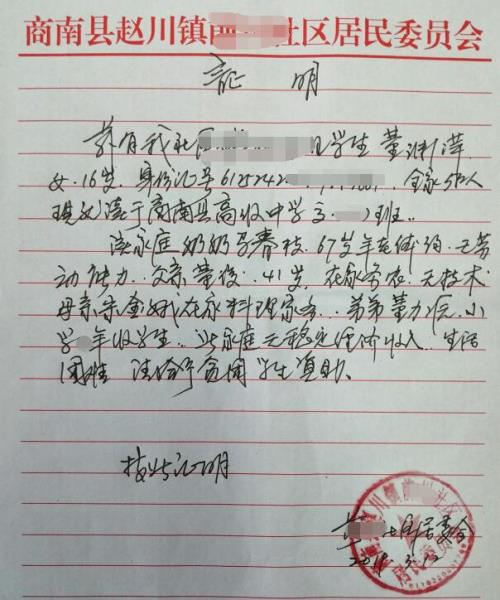 商南县赵川镇前 社区居民委员会
证 明
兹有我社区 学生 董渊萍
女. 16岁. 身份证号 6125242 全家5口人
现就读于商南县高级中学 班.
该家庭奶奶 春枝. 67岁年老体弱. 无劳
动能力. 父亲董俊. 41岁. 在家务农. 无技术
母亲朱金 在家料理家务. 弟弟董 小
学 年级学生. 此家庭无稳定经济收入. 生活
困难 请给予贫困学生资助.
特此证明
社区居委会